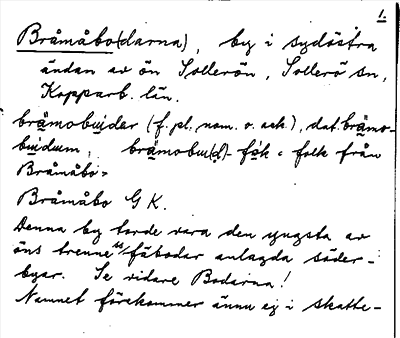 1.
Bråmåbo(darna), by i sydöstra
ändan av ön Sollerön, Sollerö sn,
Kopparb. län.
brämobuider (f. pl. nom. o. ack.), dat. brämo-
buidum, brämobu(d)-fók = folk från
Bråmåbo.
Bråmåbo G K.
Denna by torde vara den yngsta av
öns trenne fäbodar anlagda söder-
byar. Se vidare Bodarna!
Namnet förekommer ännu ej i skatte-